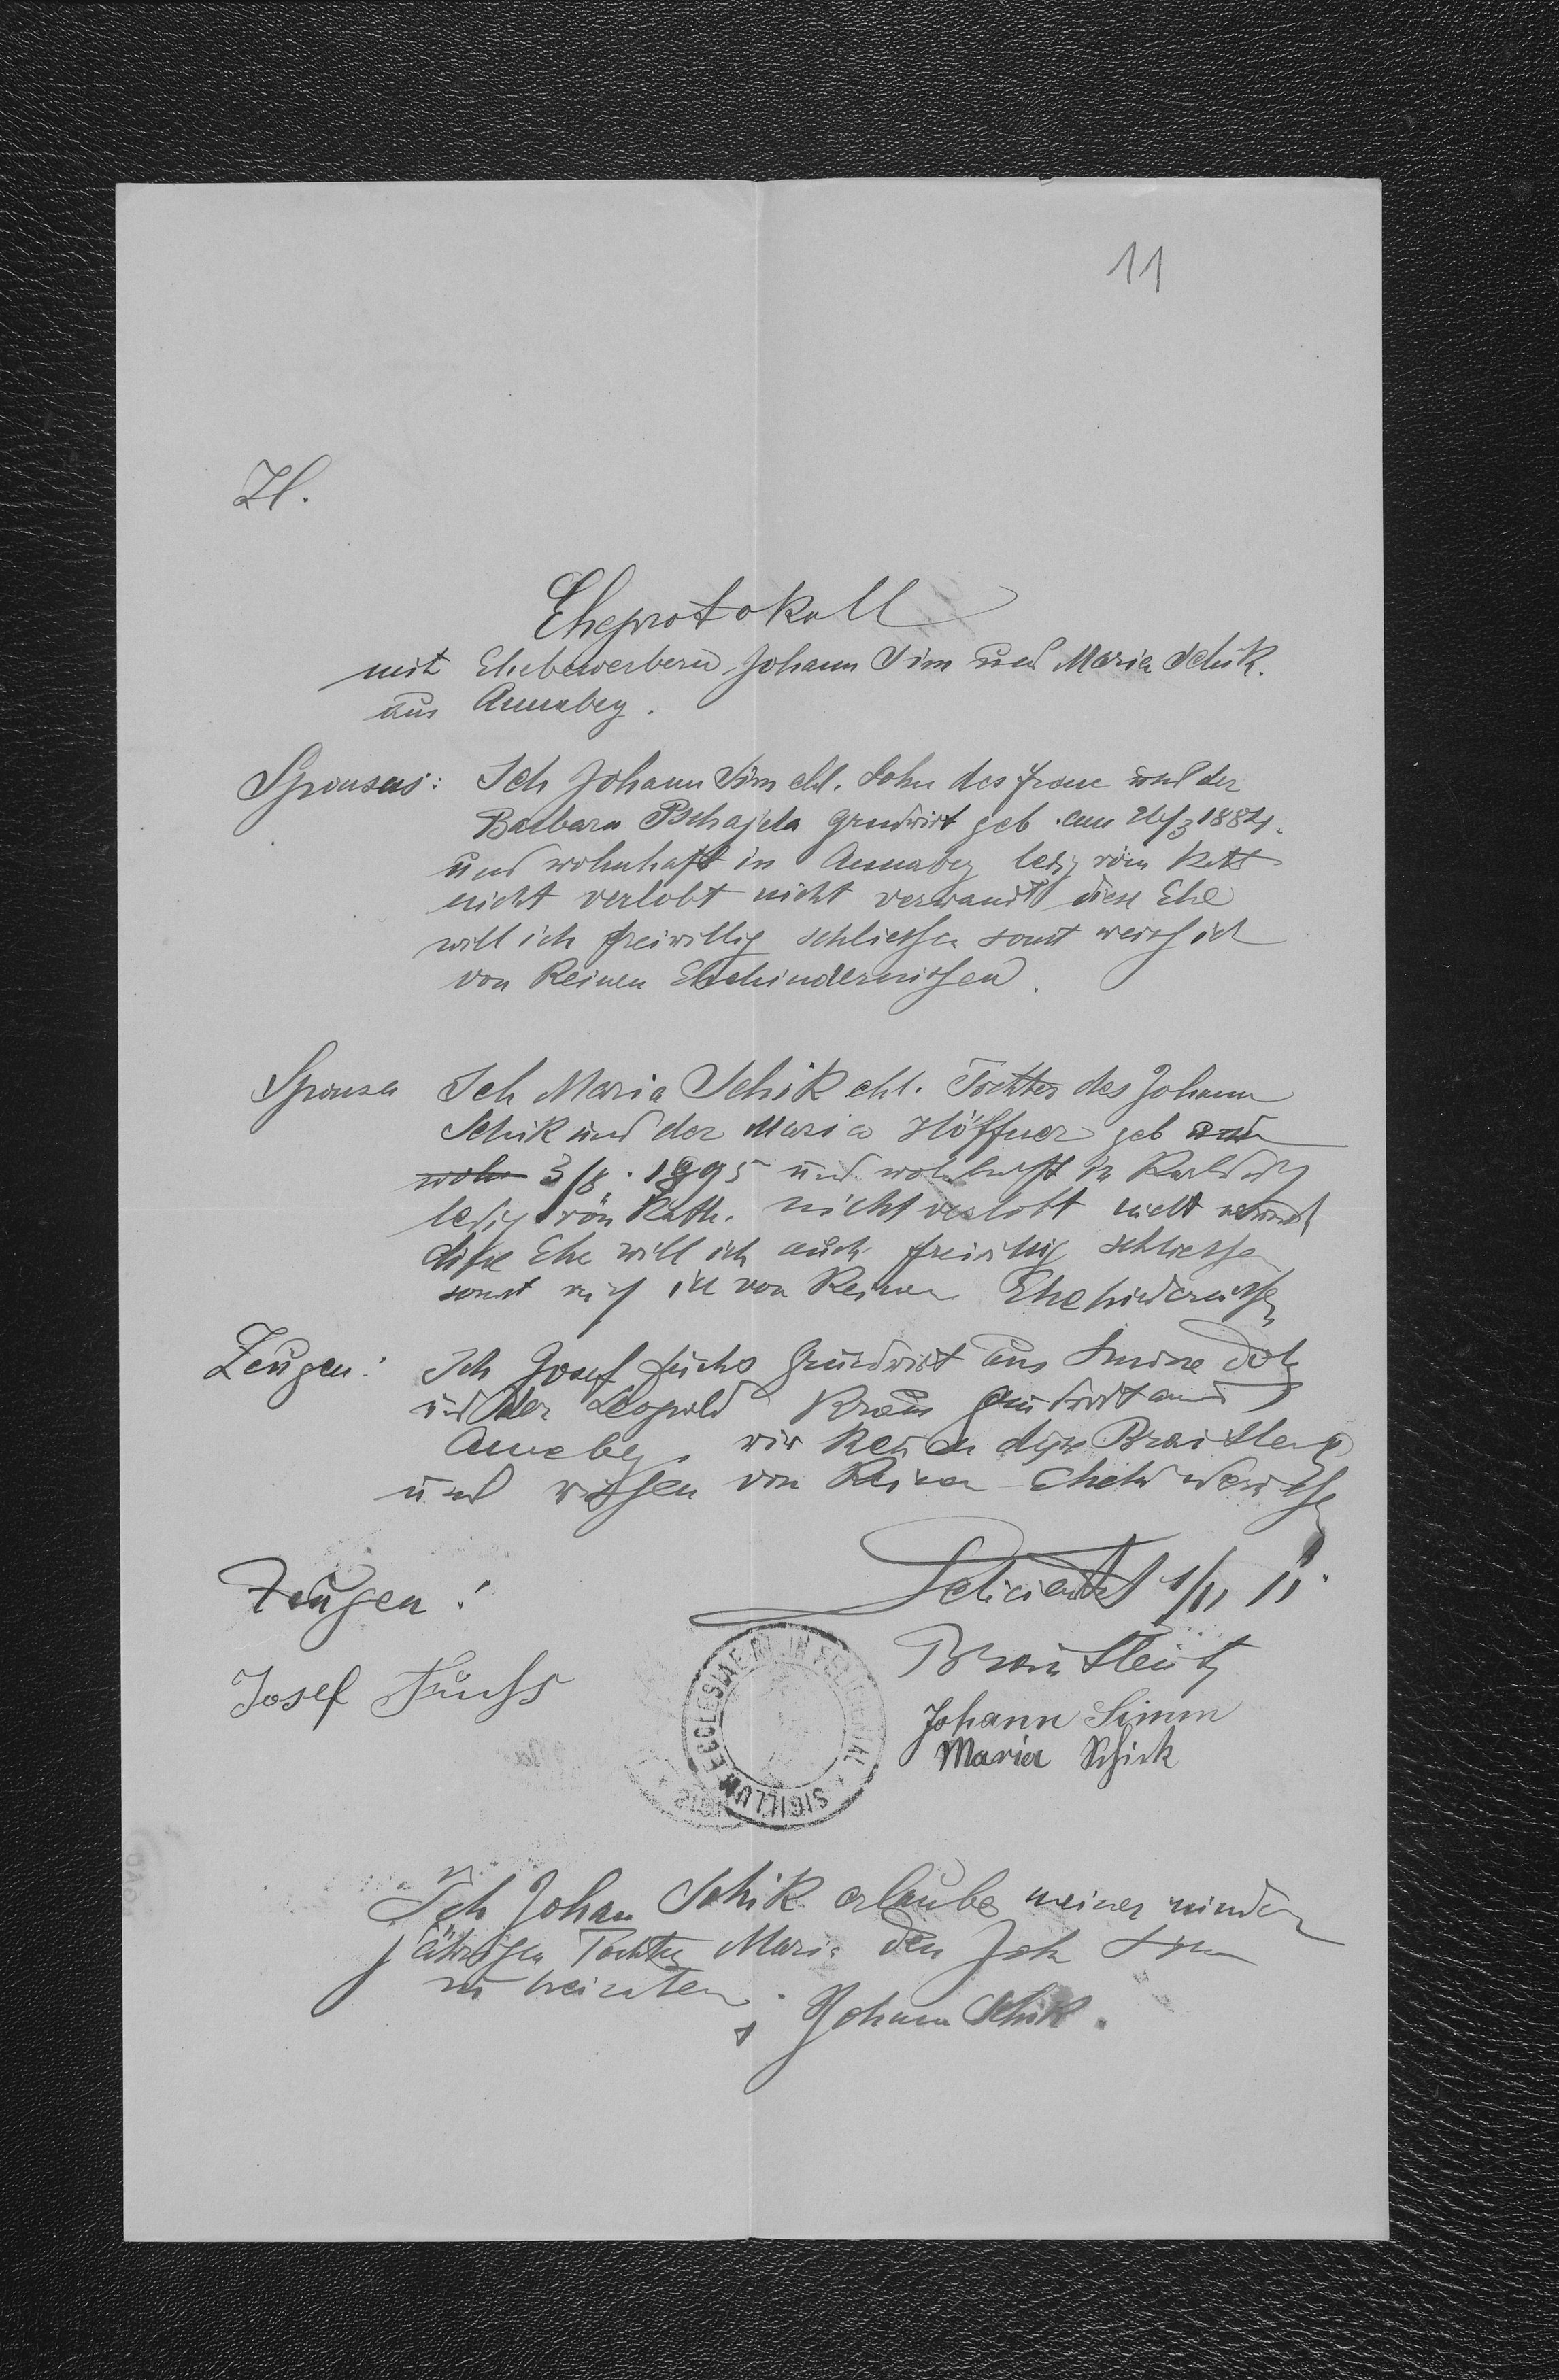 11
Zl.
Eheprotokoll
mit Ehebewerbern Johann Sim und Maria Schik.
aus Annaberg.
Sponsus: Ich Johann Sim ehl. Sohn des Franz und der
Barbara Pschajda Grundwirt geb. am 1884.
und wohnhaft in Annaberg ledig röm Kath
nicht verlobt nicht verwandt diese Ehe
will ich freiwillig schliessen sonst weiss ich
von keinen Ehehindernissen.
Sponsa Ich Maria Schik ehl. Tochter des Johann
Schik und der Maria Höffner geb und
wohn 3/8. 1895 und wohnhaft in
ledig röm Kath. nicht verlobt nicht verwandt
diese Ehe will ich auch freiwillig schliessen
sonst weiss ich von keinen Ehehindernissen
Zeugen: Ich Josef Fuchs Grundwirt aus
und der Leopold Kraus Grundwirt aus
Annaberg. wir kennen diese Brautleute
und wissen von keinen Ehehindernissen
Zeugen: Felicienthal 1/11 11.
Brautleute
Josef Fuchs
Johann Simm
Maria Schick
SIGILLUM ECCLESIAE IN FELICIENTAL
Ich Johan Schik erlaube meiner minder
jährigen Tochter Maria den Joh Sim
zu heiraten. Johann Schik.